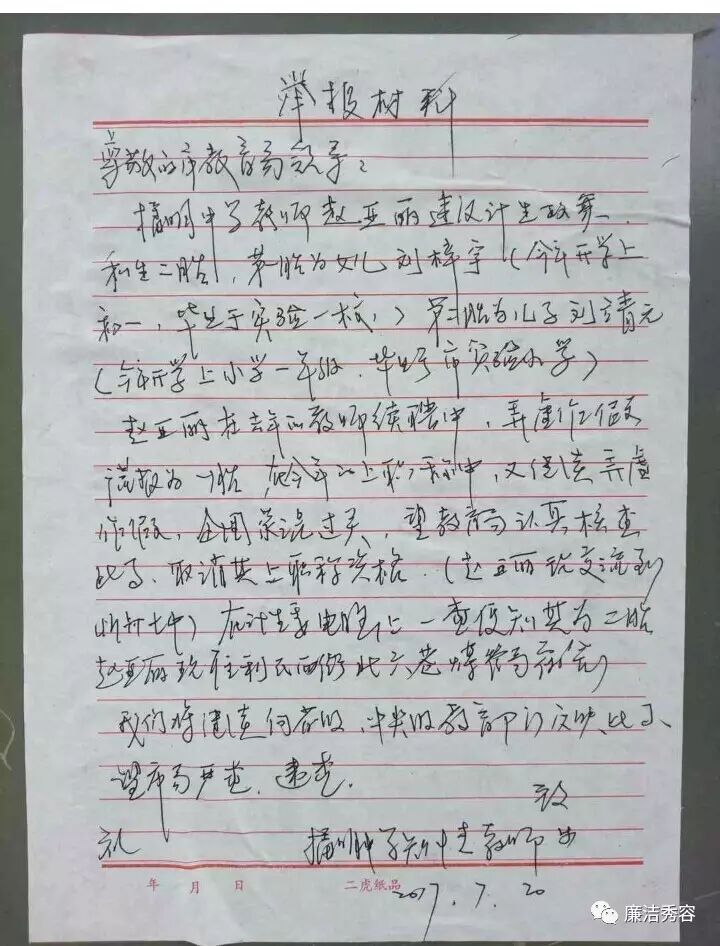 举报材料
尊敬的市教育局领导:
中学教师赵亚丽违反计生政策、
私生二胎,第一胎为女儿刘梓宇(今年开学上
初一,毕业于实验一校,)第二胎为儿子刘靖元
(今年开学上小学一年级.毕业于市实验小学)
赵亚丽在去年的教师续聘中,弄虚作假
谎报为一胎,在今年的上职称中,又继续弄虚
作假,企图蒙混过关,望教育局认真核查
此事、取消其上职称资格.(赵亚丽现交流到
七中)在计生委电脑上一查便知其为二胎
赵亚丽现住利民西街北六巷宿舍)
我们将继续向省的、中央的教育部门反映此事、
望市局严查.速查.
致
礼
中学知情教师
年 月 日
二虎纸品
2017.7.20
廉洁秀容